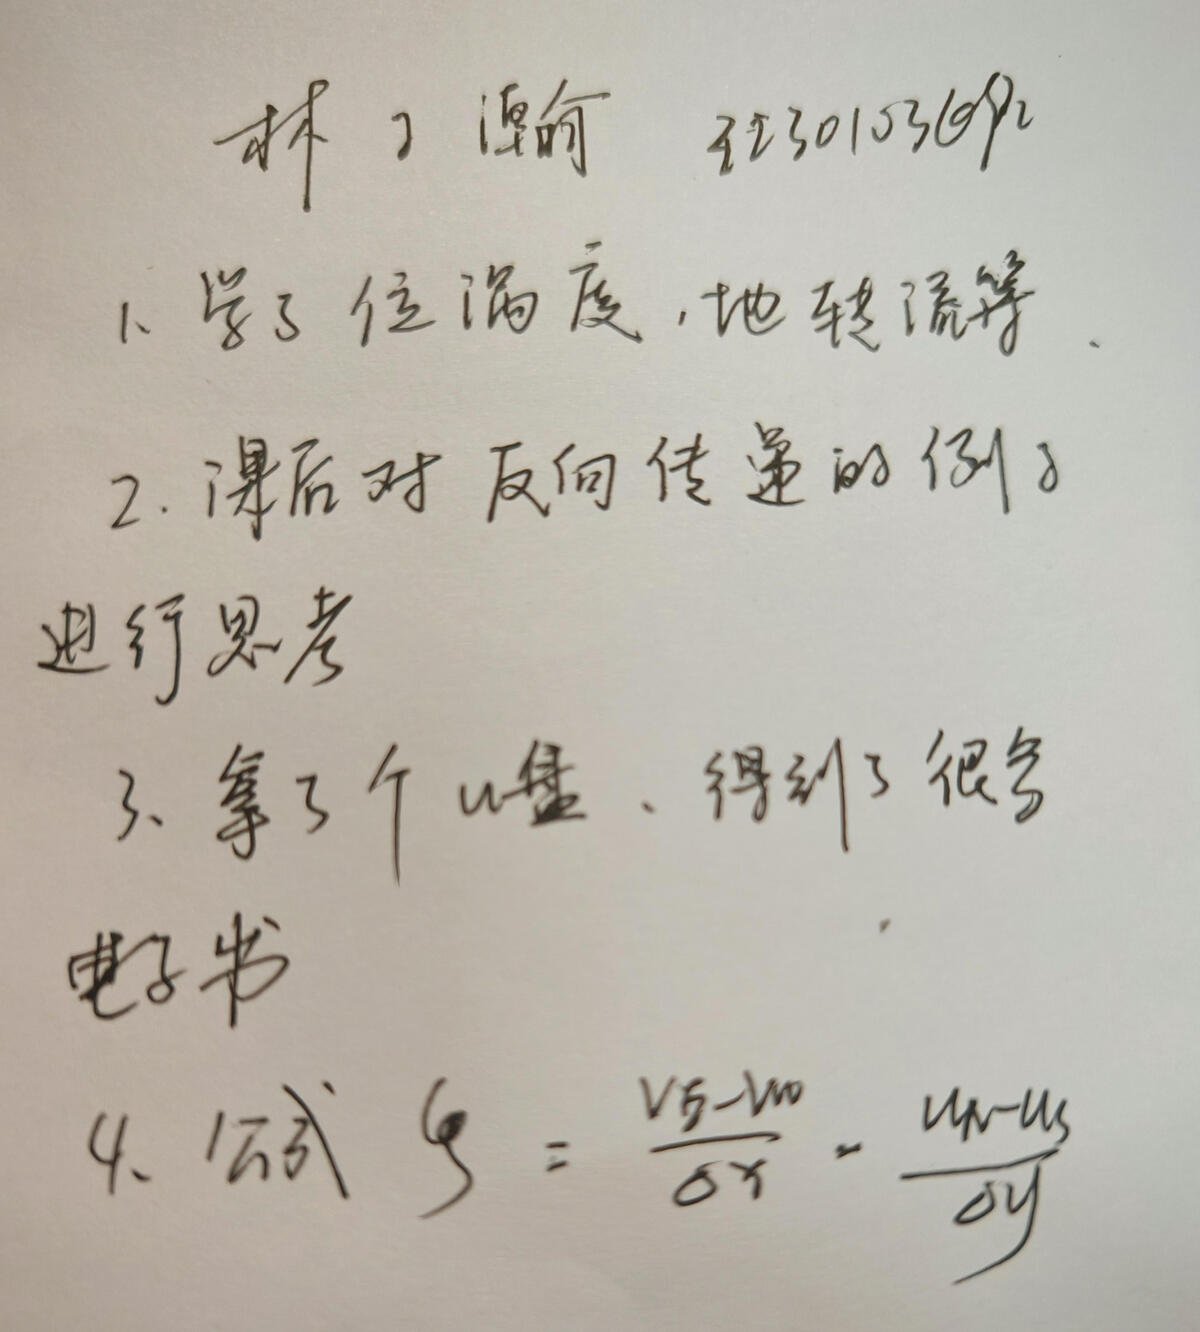 林子
1、学了位涡度,地转流等.
2.课后对反向传递的例子
进行思考
3、拿了个u盘、得到了很多
电子书
4、公式 ζ = (V_E-V_W)/δx - (u_N-u_S)/δy